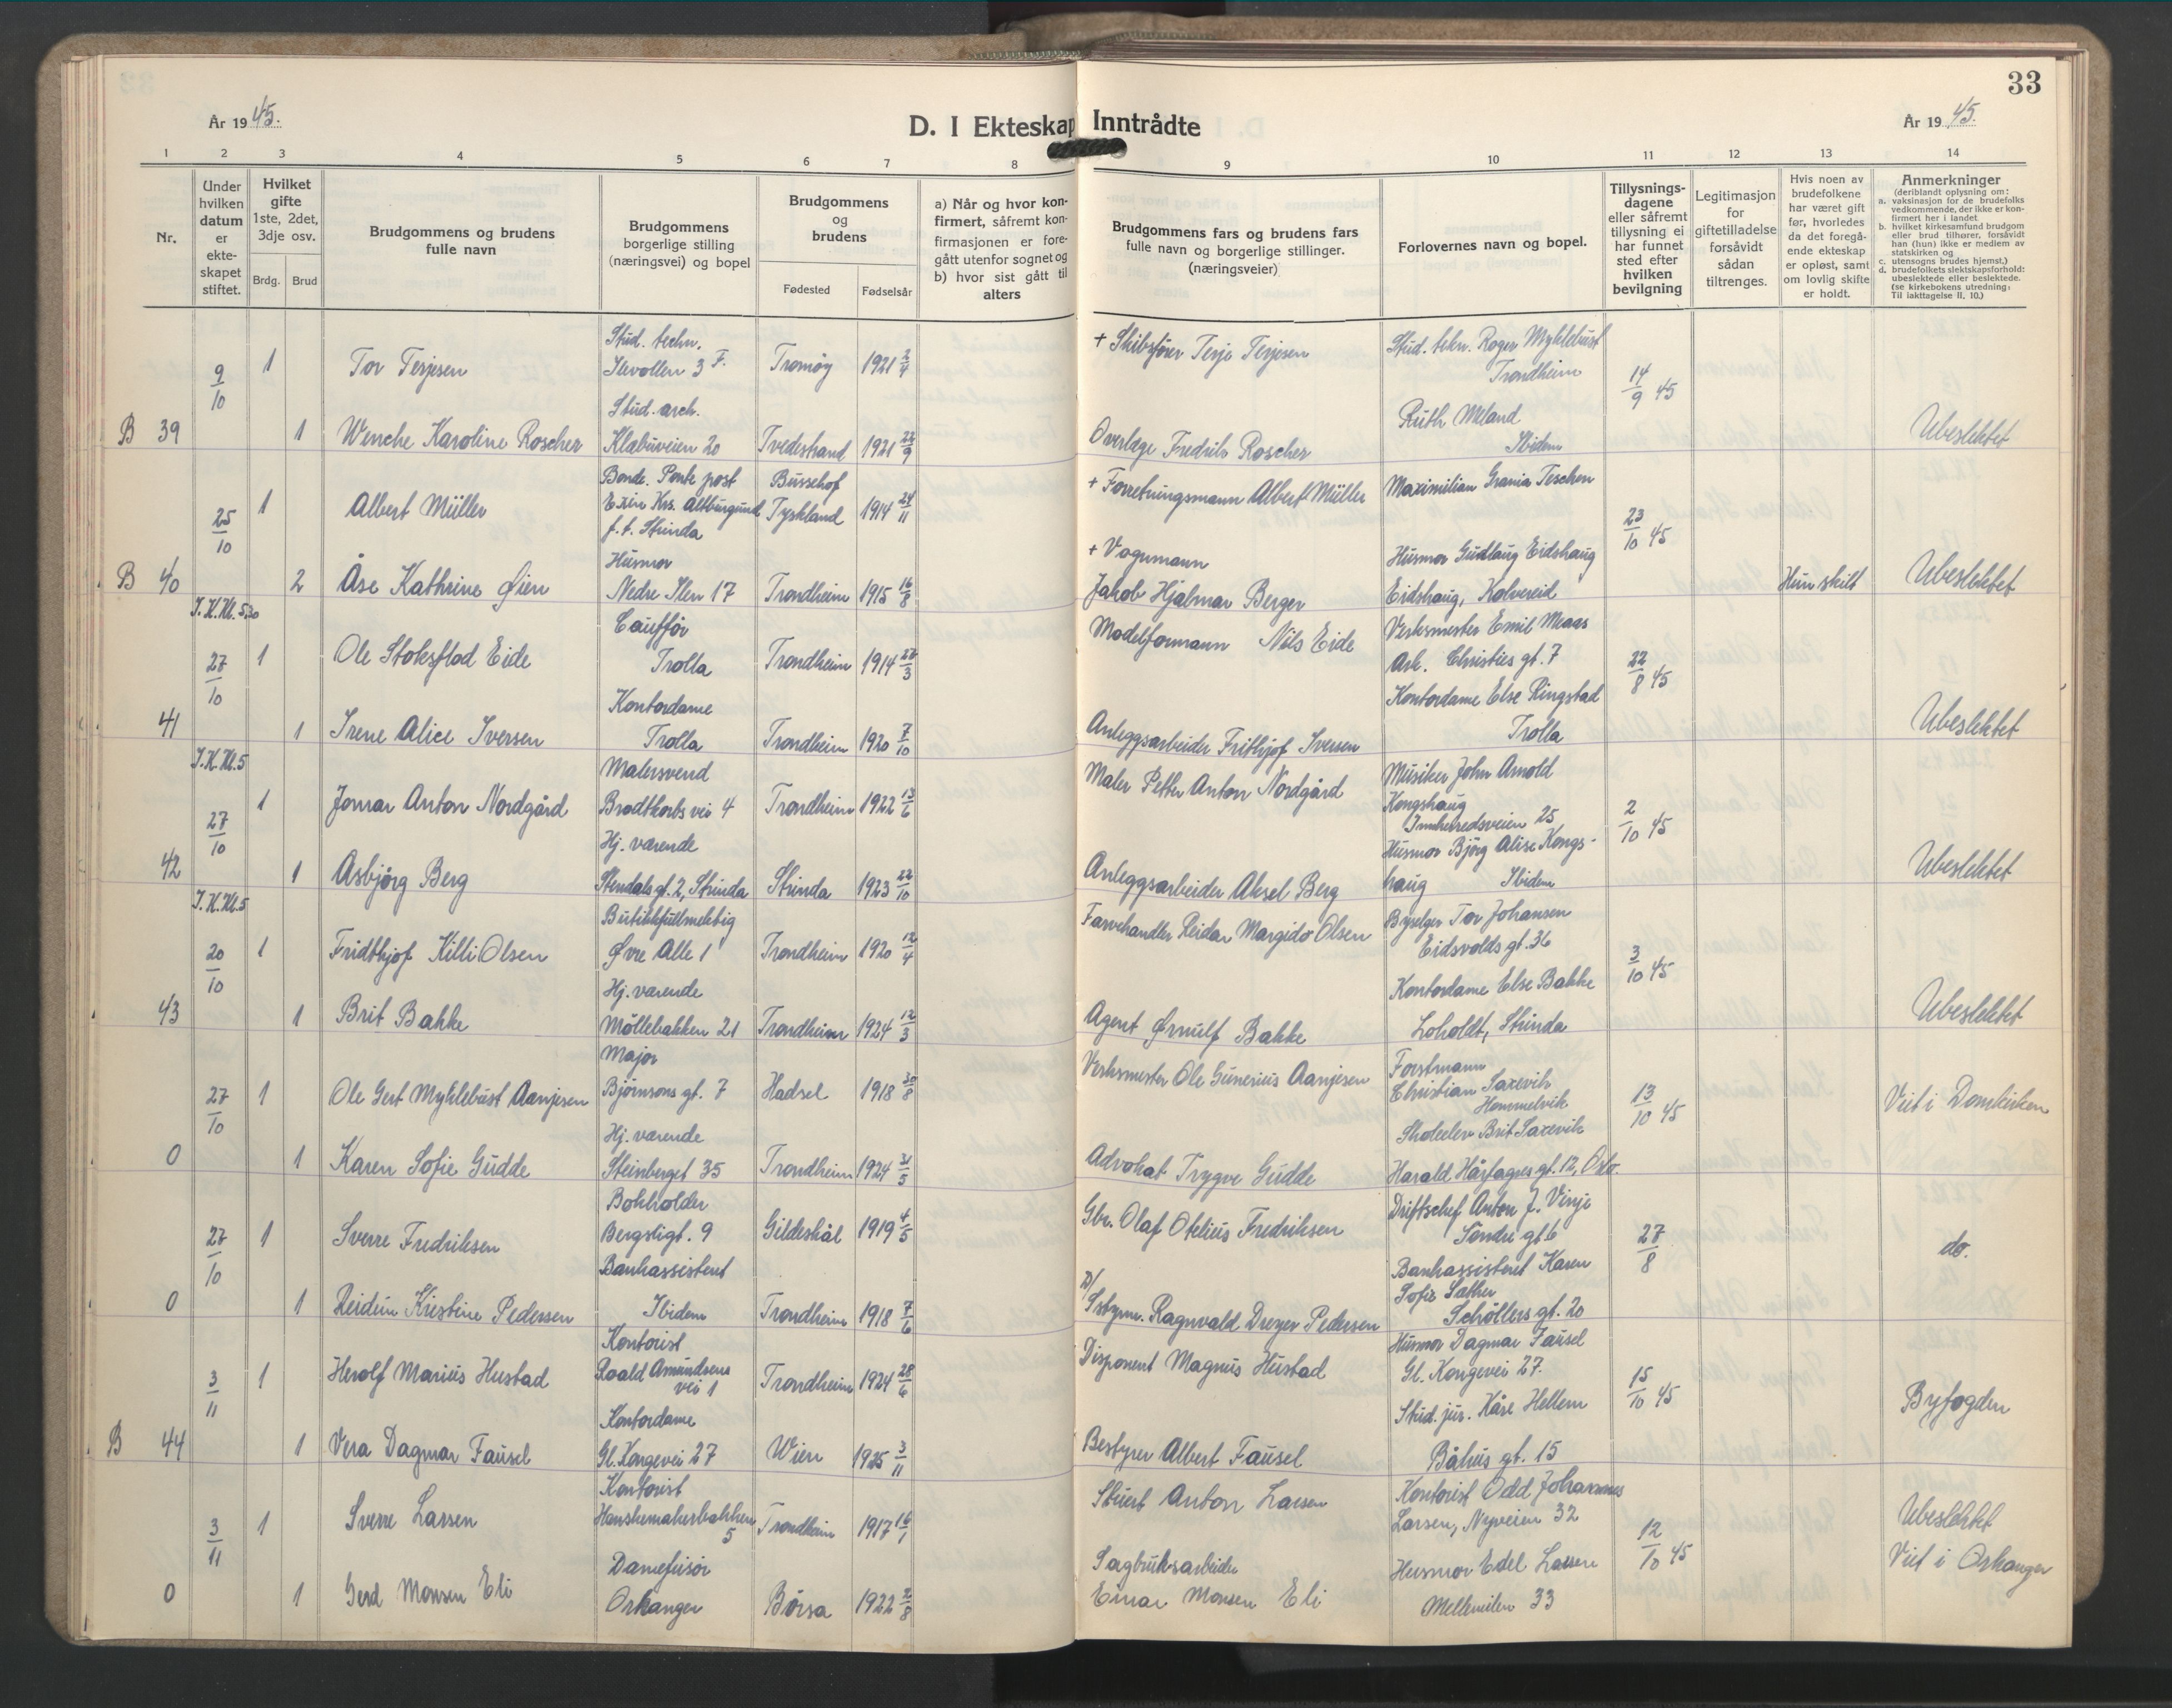 33
År 1945.
D. I Ekteskap Inntrådte
År 1945.
1 2 3 4 5 6 7 8 9 10 11 12 13 14
Nr.
Under hvilken datum er ekte-skapet stiftet.
Hvilket gifte 1ste, 2det, 3dje osv.
Brdg. Brud
Brudgommens og brudens fulle navn
Brudgommens borgerlige stilling (næringsvei) og bopel
Brudgommens og brudens
Fødested Fødselsår
a) Når og hvor kon-firmert, såfremt kon-firmasjonen er fore-gått utenfor sognet og b) hvor sist gått til alters
Brudgommens fars og brudens fars fulle navn og borgerlige stillinger. (næringsveier)
Forlovernes navn og bopel.
Tillysnings-dagene eller såfremt tillysning ei har funnet sted efter hvilken bevilgning
Legitimasjon for giftetilladelse forsåvidt sådan tiltrenges.
Hvis noen av brudefolkene har været gift før, hvorledes da det foregå-ende ekteskap er opløst, samt om lovlig skifte er holdt.
Anmerkninger
(deriblandt oplysning om:
a. vaksinasjon for de brudefolks vedkommende, der ikke er kon-firmert her i landet
b. hvilket kirkesamfund brudgom eller brud tilhører, forsåvidt han (hun) ikke er medlem av statskirken og
c. utensogns brudes hjemst.)
d. brudefolkets slektskapsforhold: ubeslektede eller beslektede.
(se kirkebokens utredning: Til iakttagelse II, 10.)
9/10 1 Tor Terjesen Stud. techn. Ilevollen 3 F. Tromøy 1921 2/4 + Skibsfører Terje Terjesen Stud. tekn. Roger Myklebust Trondheim 14/9 45
B 39 1 Wenche Karoline Roscher Stud. arch. Klæbuveien 20 Tvedestrand 1921 22/9 Overlæge Fredrik Roscher Ruth Meland Ibidem Ubeslektet
25/10 1 Albert Müller Bonde. Ponte post Exin Krs. Altburgund f. t. Strinda Bussehof Tyskland 1914 24/11 + Forretningsmann Albert Müller Maximilian Grania Teschen 23/10 45
B 40 2 Åse Kathrine Øien Husmor Nedre Ilen 17 Trondheim 1915 16/8 + Vognmann Jakob Hjalmar Berger Husmor Gudlaug Eidshaug Eidshaug, Kolvereid Hun skilt Ubeslektet
I.K. Kl. 5,30
27/10 1 Ole Stoksflod Eide Cauffør Trolla Trondheim 1914 27/3 Modelformann Nils Eide Verksmester Emil Maas Ark. Christies gt. 7 22/8 45
41 1 Irene Alice Iversen Kontordame Trolla Trondheim 1920 7/10 Anleggsarbeider Frithjof Iversen Kontordame Else Ringstad Trolla Ubeslektet
I.K. Kl. 5
27/10 1 Jomar Anton Nordgård Malersvend Brodtkorbs vei 4 Trondheim 1922 13/6 Maler Petter Anton Nordgård Musiker John Arnold Kongshaug Innherredsveien 25 2/10 45
42 1 Asbjørg Berg Hj. værende Stendals gt. 2, Strinda Strinda 1923 22/10 Anleggsarbeider Aksel Berg Husmor Bjørg Alise Kongs-haug Ibidem Ubeslektet
I.K. Kl. 5
20/10 1 Fridthjof Killi Olsen Butikkfullmektig Øvre Alle 1 Trondheim 1920 12/4 Farvehandler Reidar Margido Olsen Byselger Tor Johansen Eidsvolds gt. 36 3/10 45
43 1 Brit Bakke Hj. værende Møllebakken 21 Trondheim 1924 12/3 Agent Ørnulf Bakke Kontordame Else Bakke Loholdt, Strinda Ubeslektet
27/10 1 Ole Gert Myklebust Aanjesen Major Bjørnsons gt. 7 Hadsel 1918 30/8 Verksmester Ole Gunerius Aanjesen Forstmann Christian Saxevik Hommelvik 13/10 45 Viet i Domkirken
0 1 Karen Sofie Gudde Hj. værende Steinberget 35 Trondheim 1924 31/5 Advokat Trygve Gudde Skoleelev Brit Saxevik Harald Hårfagres gt. 12, Oslo.
27/10 1 Sverre Fredriksen Bokholder Bergsligt. 9 Gildeskål 1919 4/5 Gbr. Olaf Otelius Fredriksen Driftschef Anton J. Vinje Søndre gt 6 27/8 do.
0 1 Reidun Kristine Pedersen Bankassistent Ibidem Trondheim 1918 7/6 D/Sstyrm. Ragnvald Dreyer Pedersen Bankassistent Karen Sofie Sæther Schøllers gt. 20
3/11 1 Herolf Marius Hustad Kontorist Roald Amundsens vei 1 Trondheim 1924 28/6 Disponent Magnus Hustad Husmor Dagmar Fausel Gl. Kongevei 27. 15/10 45 Byfogden
B 44 1 Vera Dagmar Fausel Kontordame Gl. Kongevei 27 Wien 1925 3/11 Bestyrer Albert Fausel Stud. jur. Kåre Hellem Båhus gt. 15
3/11 1 Sverre Larsen Kontorist Hanskemakerbakken 5 Trondheim 1917 16/1 Stuert Anton Larsen Kontorist Odd Johannes Larsen, Nyveien 32 12/10 45 Ubeslektet Viet i Orkanger
0 1 Gerd Monsen Eli Damefrisør Orkanger Børsa 1922 2/8 Sagbruksarbeider Einar Monsen Eli Husmor Edel Larsen Mellemilen 33